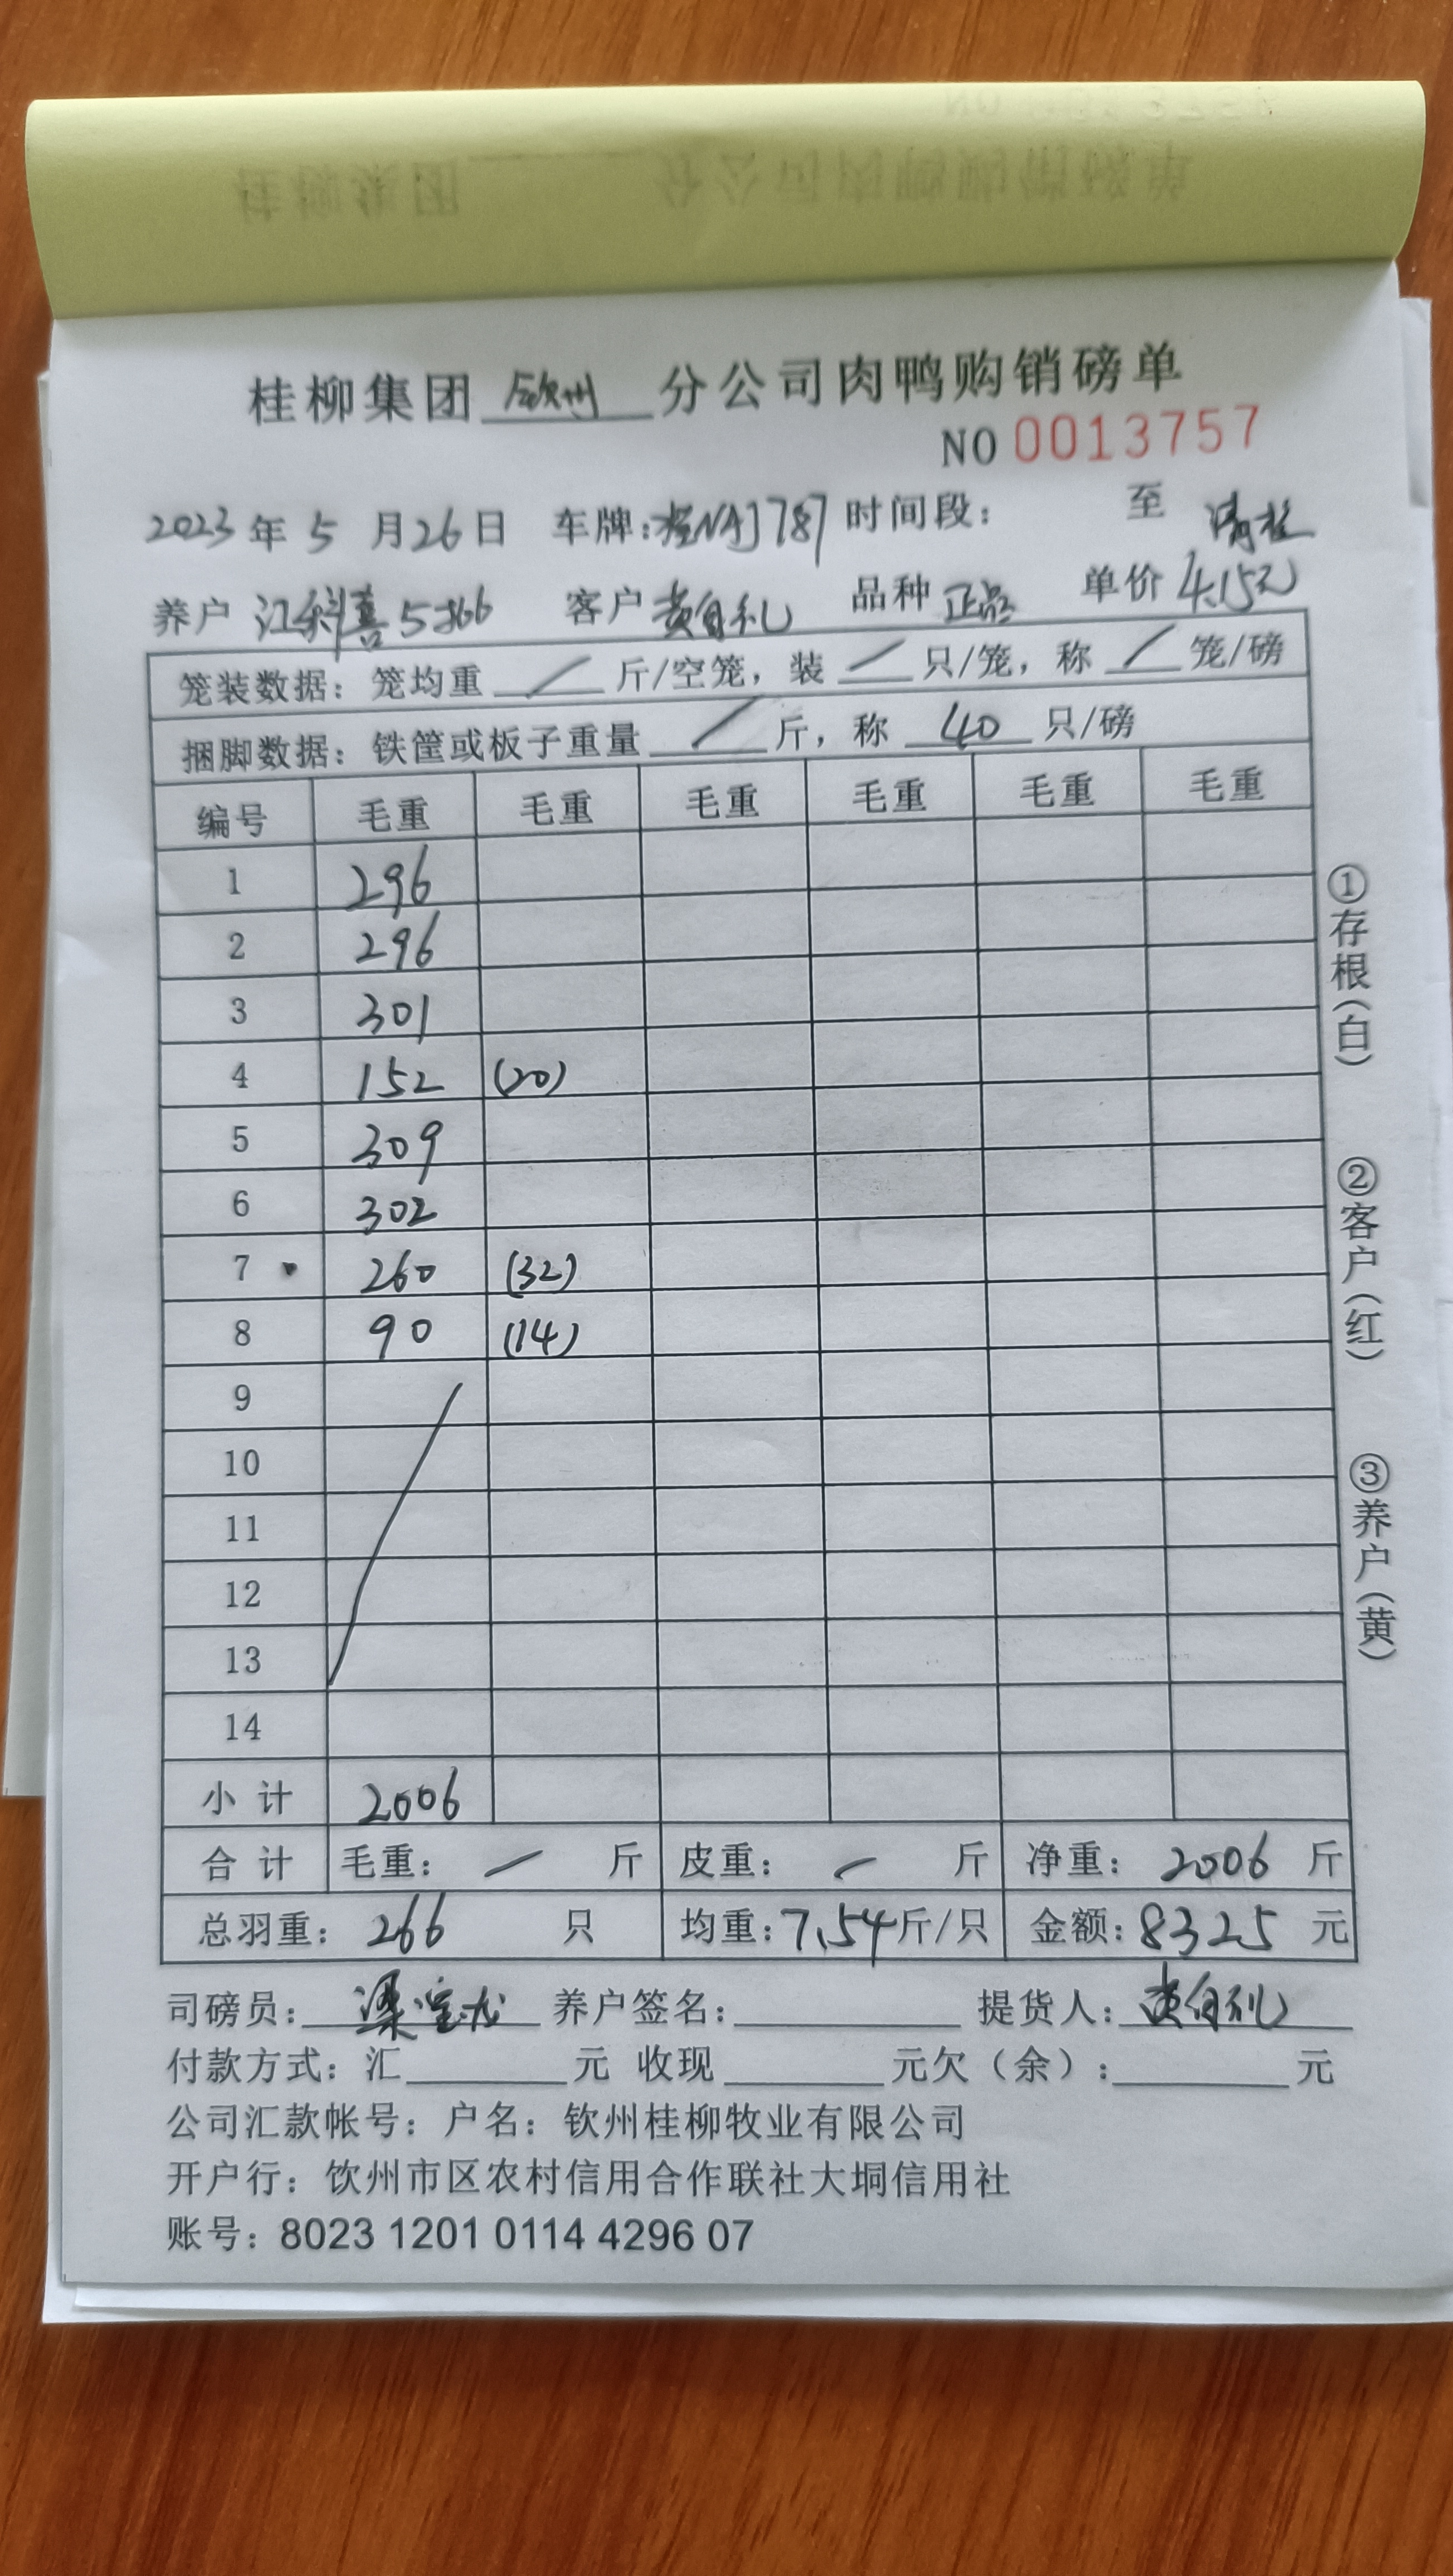 桂柳集团 钦州 分公司肉鸭购销磅单
NO 0013757
2023 年 5 月 26 日 车牌:桂NAJ787 时间段: 至 清栏
养户 江科喜 5366 客户 黄自礼 品种 正品 单价 4.15元
笼装数据: 笼均重 / 斤/空笼, 装 / 只/笼, 称 / 笼/磅
捆脚数据: 铁筐或板子重量 / 斤, 称 40 只/磅
编号 毛重 毛重 毛重 毛重 毛重 毛重
1 296
2 296
3 301
4 152 (20)
5 309
6 302
7 260 (32)
8 90 (14)
9
10
11
12
13
14
小计 2006
合计 毛重: / 斤 皮重: / 斤 净重: 2006 斤
总羽重: 266 只 均重: 7.54 斤/只 金额: 8325 元
司磅员: 养户签名: 提货人: 黄自礼
付款方式: 汇 元 收现 元欠（余）: 元
公司汇款帐号: 户名: 钦州桂柳牧业有限公司
开户行: 饮州市区农村信用合作联社大垌信用社
账号: 8023 1201 0114 4296 07
①存根(白)
②客户(红)
③养户(黄)